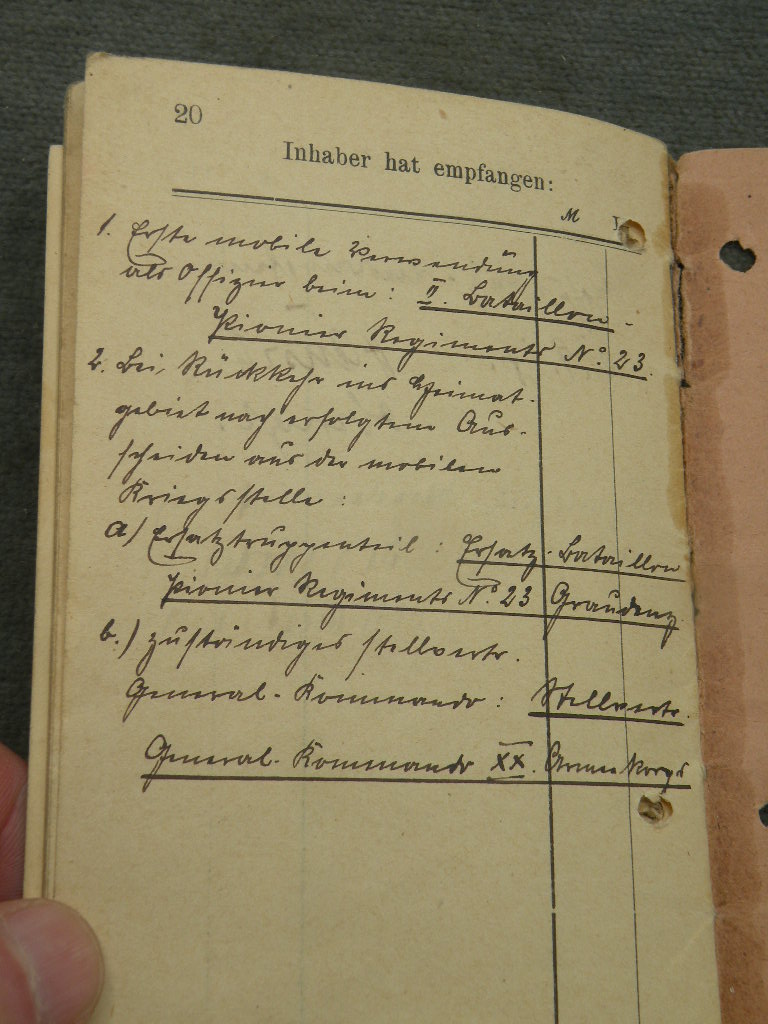 20
Inhaber hat empfangen:
M
1. Erste mobile Verwendung
als Offizier beim: II. Bataillon-
Pionier Regiments No. 23.
2. Bei Rückkehr ins Heimat-
gebiet nach erfolgtem Aus-
scheiden aus der mobilen
Kriegsstelle:
a) Ersatztruppenteil: Ersatz-Bataillon
Pionier Regiments No. 23 Graudenz
b.) zuständiges stellvertr.
General-Kommando: Stellvertr.
General-Kommando XX. Armeekorps